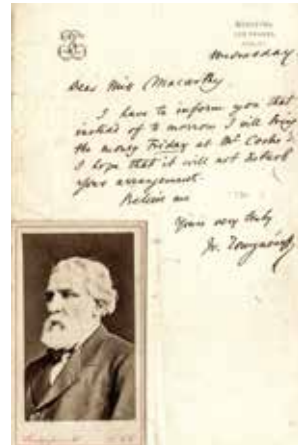 Wednesday
Dear Miss Macarthy
I have to inform you that
instead of to morrow I will bring
the money Friday at Mr Cocks's.
I hope that it will not disturb
your arrangement.
Believe me
Yours very truly